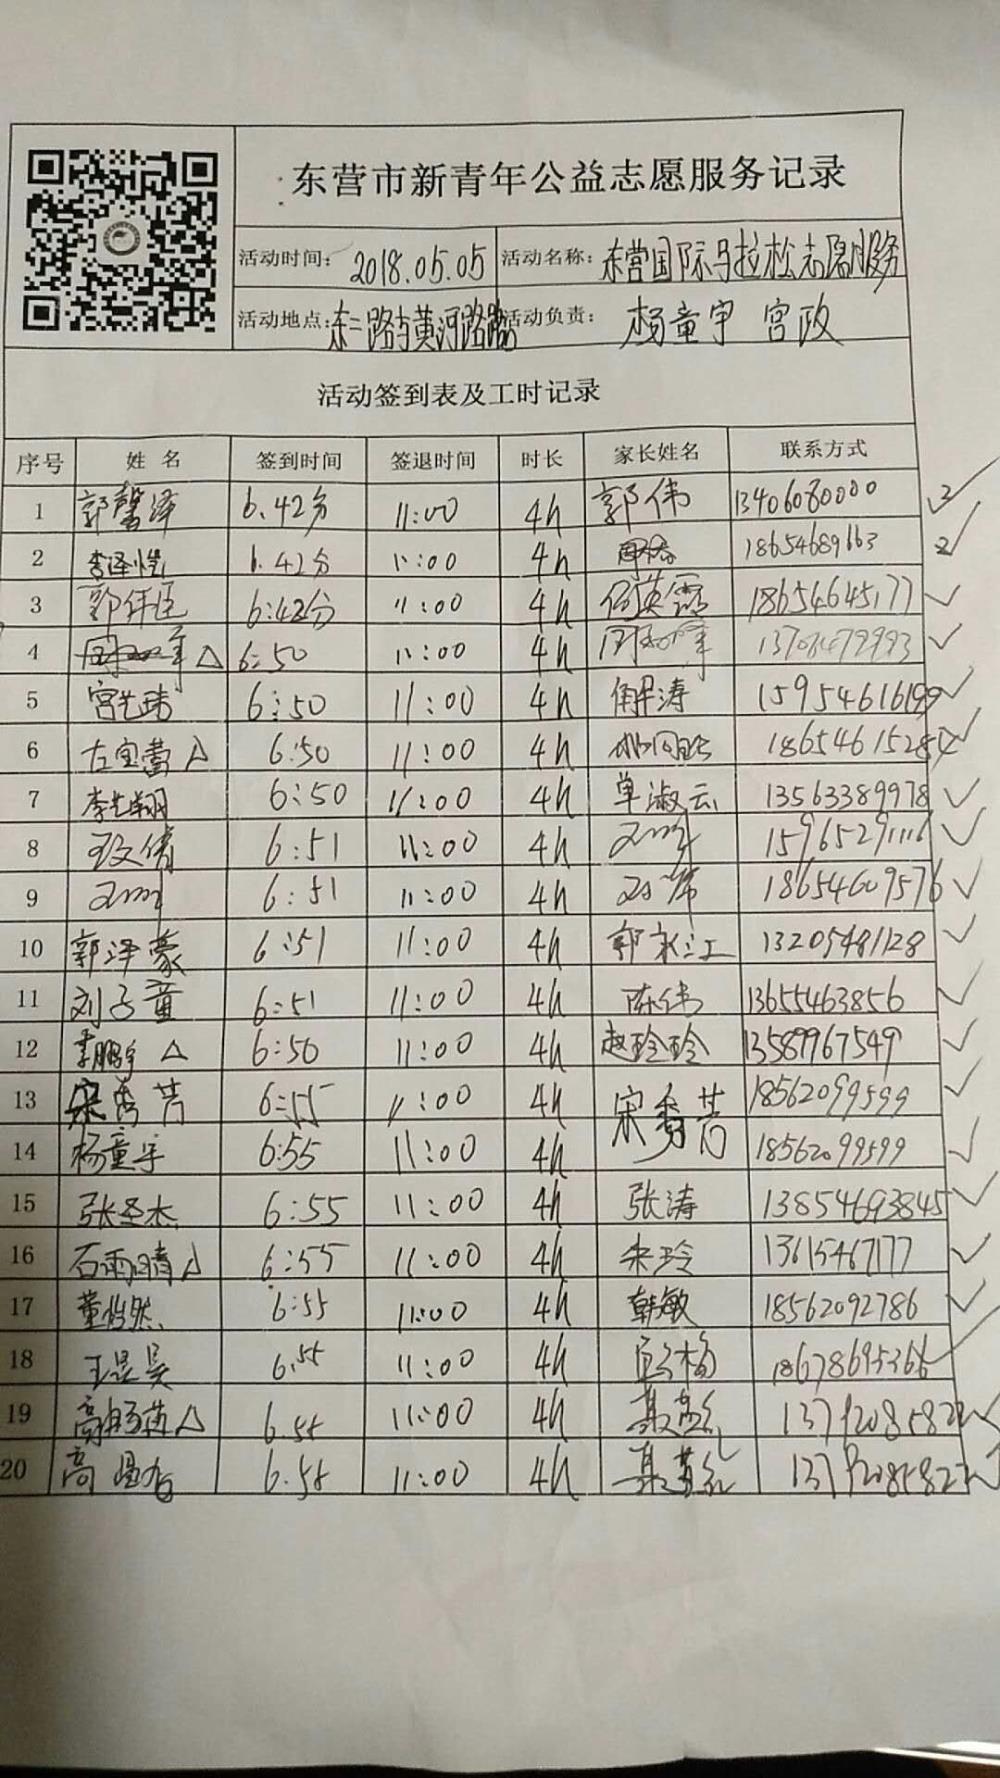 东营市新青年公益志愿服务记录
活动时间： 2018.05.05 活动名称： 东营国际马拉松志愿服务
活动地点： 东二路与黄河路 活动负责： 杨童宇 宫政
活动签到表及工时记录
序号 姓名 签到时间 签退时间 时长 家长姓名 联系方式
1 郭馨泽 6.42分 11:00 4h 郭伟 13406080000
2 李泽恺 6.42分 11:00 4h 18654689663
3 6:42分 11:00 4h 18654645177
4 6:50 11:00 4h
5 宫艺玮 6:50 11:00 4h 解涛 15954616199
6 左宝萱 6:50 11:00 4h
7 李艺翔 6:50 11:00 4h 单淑云 13563389978
8 6:51 11:00 4h 15965291116
9 6:51 11:00 4h 18654609576
10 郭泽蒙 6:51 11:00 4h 郭永江 13205481128
11 刘子童 6:51 11:00 4h 陈伟 13655463856
12 李鹏宇 6:50 11:00 4h 赵玲玲 13589967549
13 宋秀芳 6:55 11:00 4h 宋秀芳 18562099599
14 杨童宇 6:55 11:00 4h 18562099599
15 张圣杰 6:55 11:00 4h 张涛 13854693845
16 石雨晴 6:55 11:00 4h 宋玲 13615467177
17 董怡然 6:55 11:00 4h 韩敏 18562092786
18 王昱昊 6.55 11:00 4h 18678695366
19 6.55 11:00 4h
20 高 6.55 11:00 4h